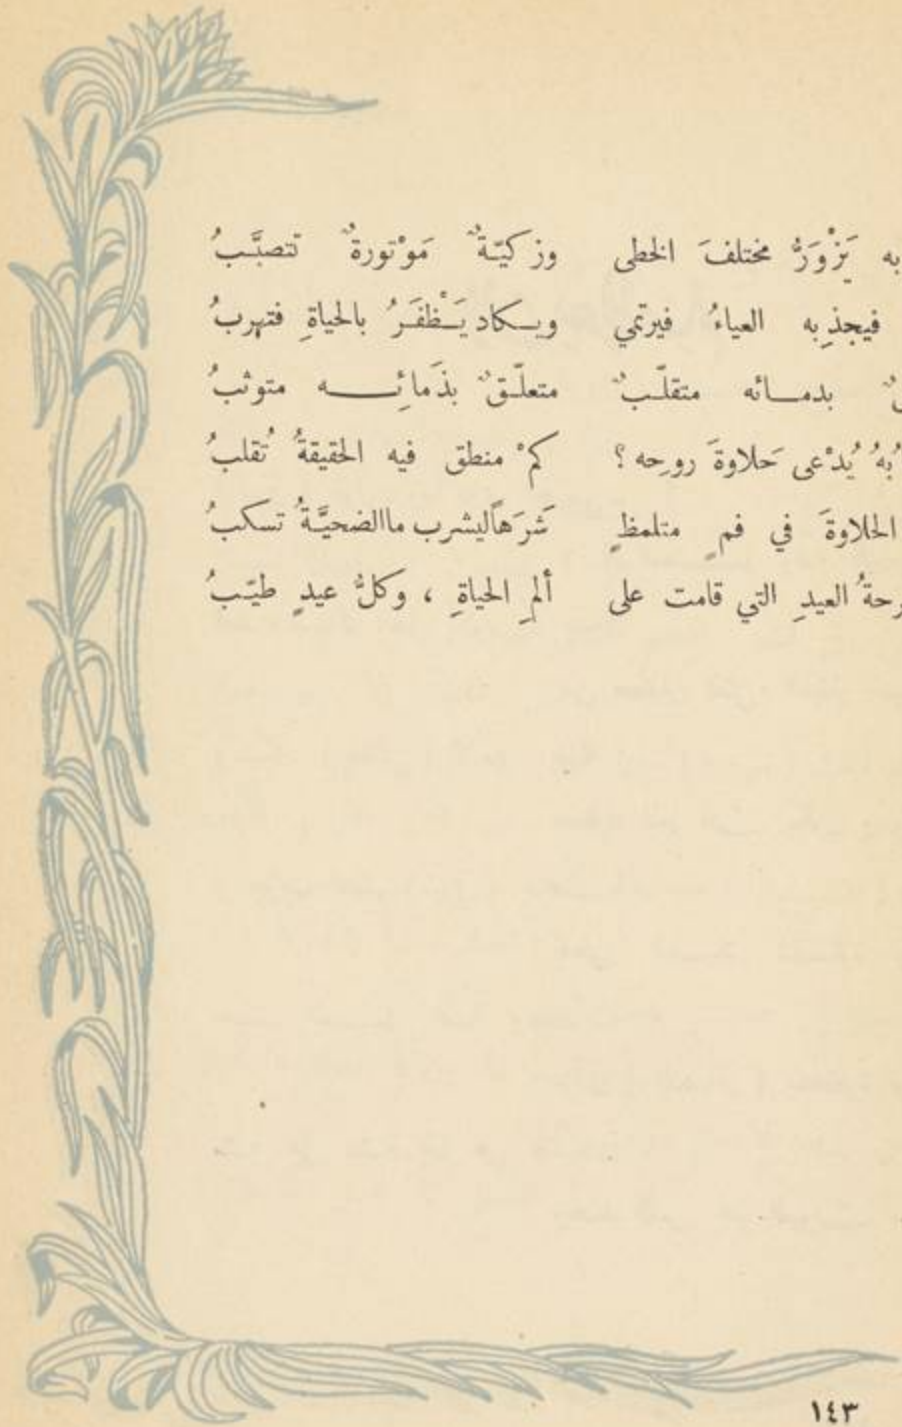 به يَزْوَرُّ مختلفَ الخطى وزكيّةٌ مَوْتورةٌ تتصبَّبُ
فيجذبِه العياءُ فيرتمي ويكاد يَظْفَرُ بالحياةِ فتهربُ
بدمائه متقلّبٌ متعلّقٌ بذَمائِه متوثبُ
يُدْعى حَلاوةَ روحِه ؟ كمْ منطق فيه الحقيقةُ تُقلبُ
الحلاوةَ في فمٍ متلمظٍ شَرَهاًليشرب ماالضحيَّةُ تسكبُ
العيدِ التي قامت على ألمِ الحياةِ ، وكلُّ عيدٍ طيّبُ
١٤٣